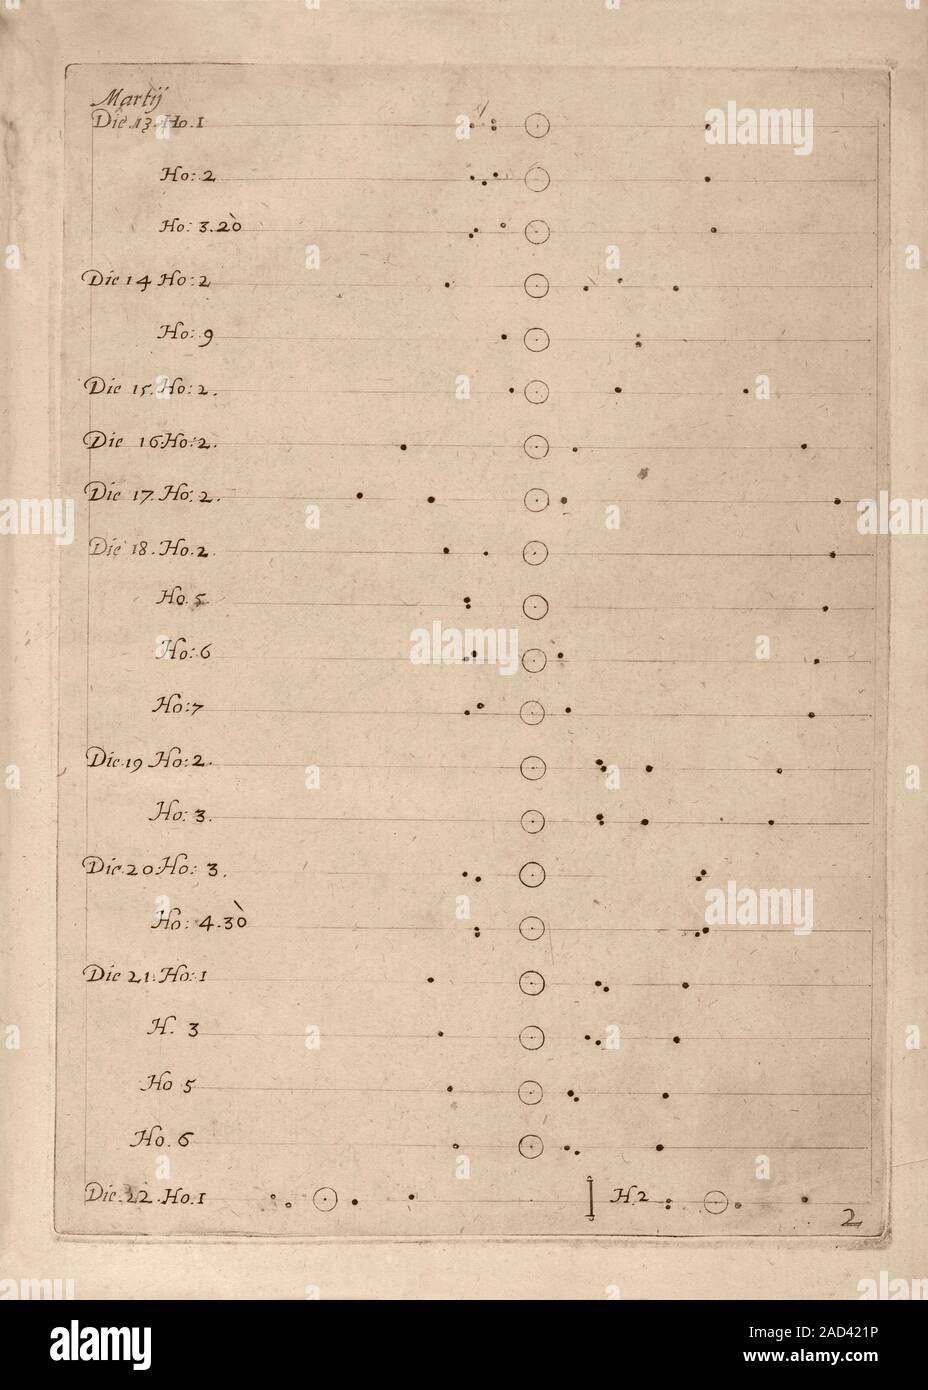 Martij
Die .13. Ho. 1
Ho: 2
Ho: 3.20
Die 14 Ho: 2
Ho: 9
Die 15. Ho: 2.
Die 16 Ho: 2.
Die 17. Ho: 2.
Die 18. Ho. 2
Ho. 5
Ho: 6
Ho: 7
Die .19 Ho: 2.
Ho: 3.
Die. 20. Ho: 3.
Ho: 4.30
Die 21. Ho: 1
H. 3
Ho 5
Ho. 6
Die. 22. Ho. 1 H. 2
2
alamy
alamy
alamy
alamy
alamy
Image ID: 2AD421P
www.alamy.com